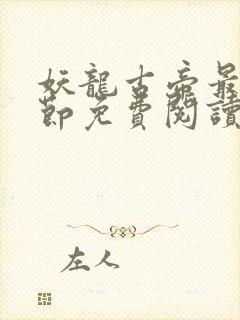 妖龍古帝最
節免費閱讀
左人